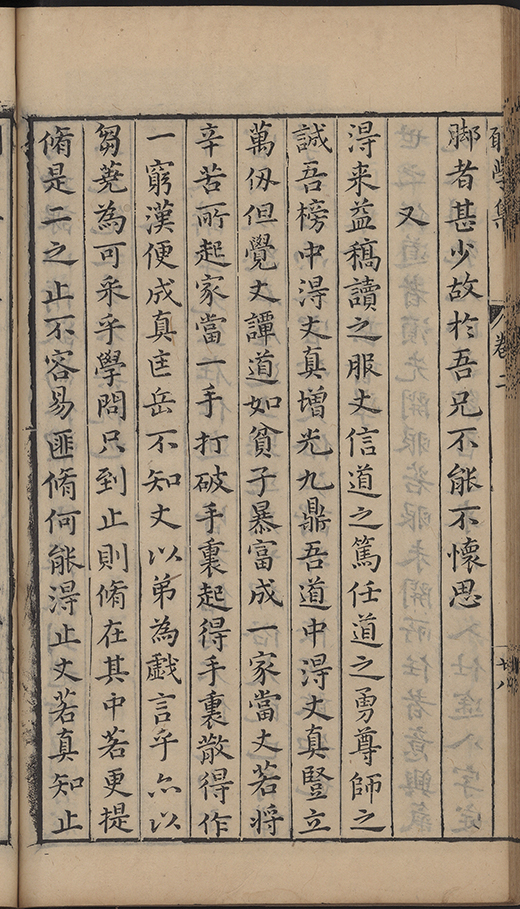 學集
卷二
廿八
脚者甚少故於吾兄不能不懷思
又
淂来益稿讀之服丈信道之篤任道之勇尊師之
誠吾榜中淂丈真增光九鼎吾道中淂丈真豎立
萬仭但覺丈譚道如貧子暴富成一家當丈若將
辛苦所起家當一手打破手裏起得手裏散得作
一窮漢便成真匡岳不知丈以弟為戲言乎亦以
芻蕘為可采乎學問只到止則脩在其中若更提
脩是二之止不容易匪脩何能淂止丈若真知止